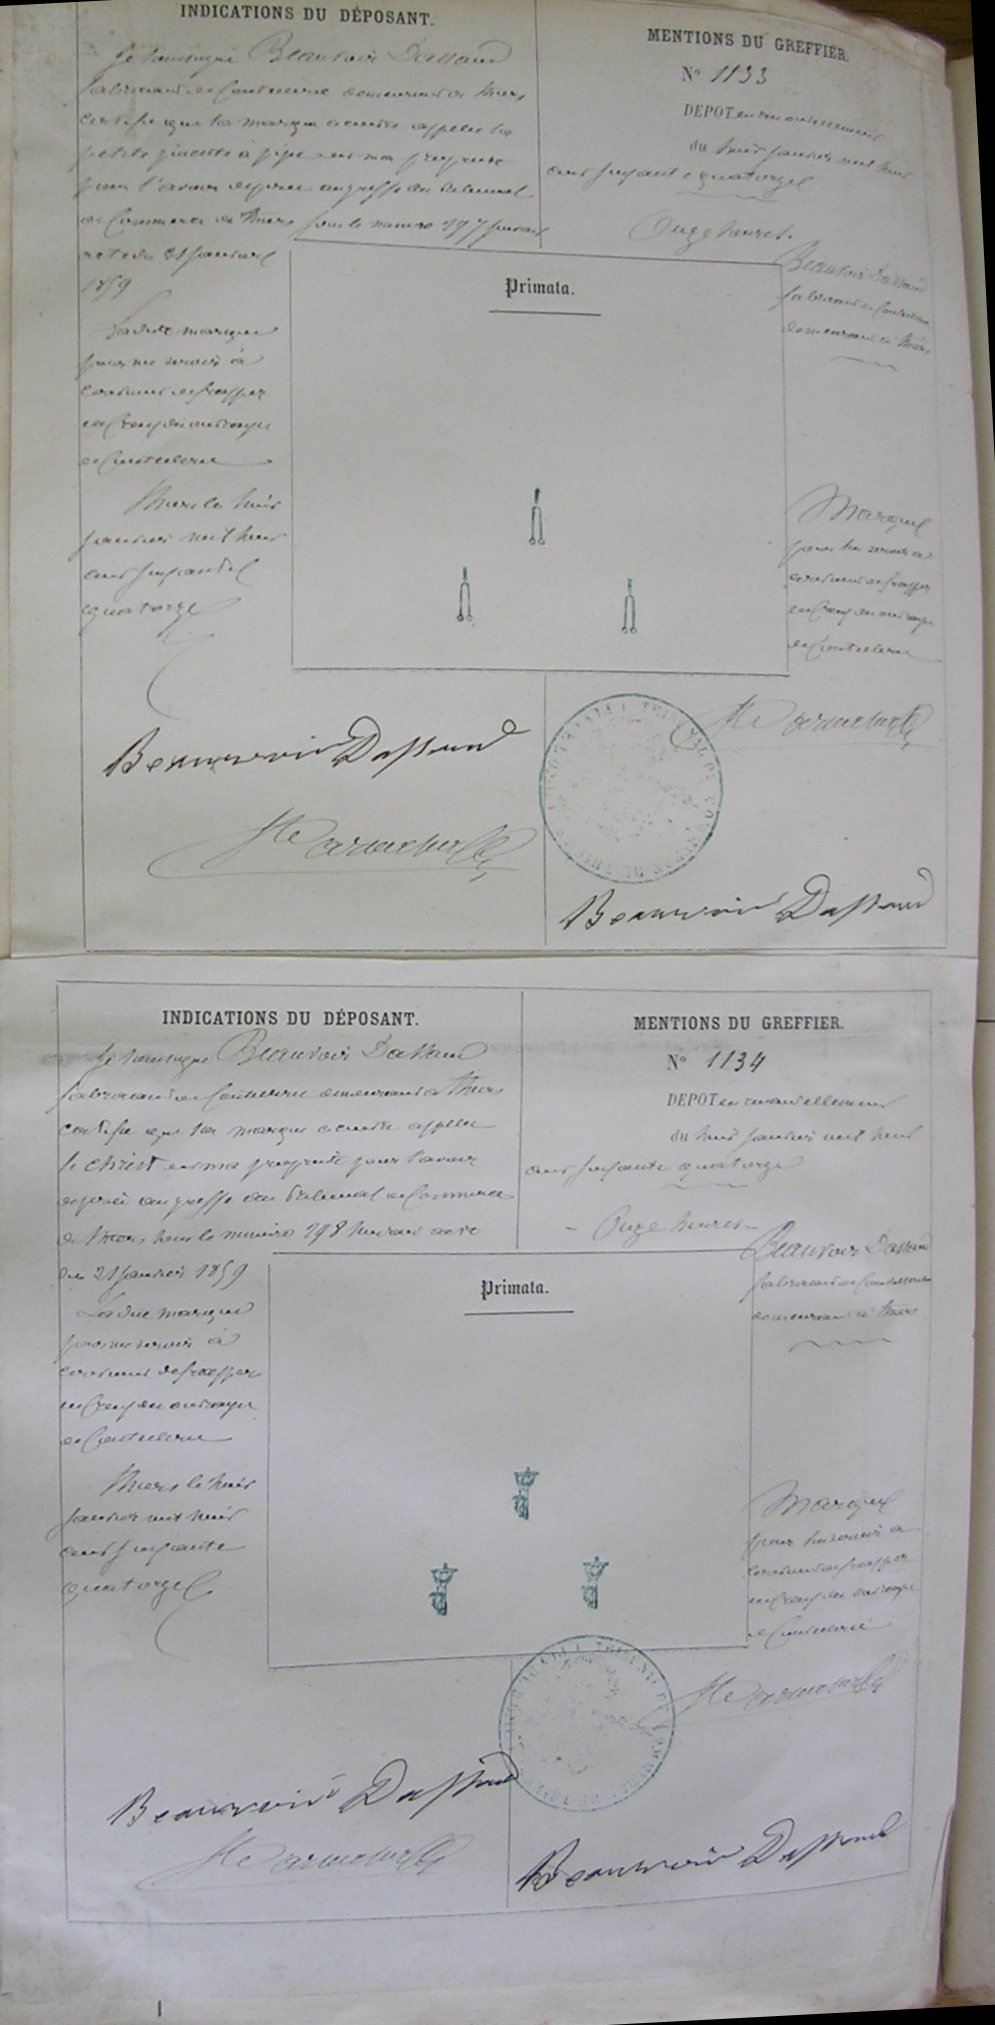 INDICATIONS DU DÉPOSANT.
Je soussigné Beauvoir Dassaud
fabricant de Coutellerie demeurant à Thiers
certifie que la marque ci contre appelée la
petite pincette à pipe est ma propriété
pour l'avoir déposée au greffe du tribunal
de Commerce de Thiers sous le numéro 197 suivant
acte du 21 Janvier
1859
Ladite marque
pour me servir à
continuer de frapper
en Creux des ouvrages
de Coutellerie
Thiers le huit
Janvier mil huit
cent soixante
quatorze
MENTIONS DU GREFFIER.
N° 1133
DEPOT en renouvellement
du huit Janvier mil huit
cent soixante quatorze
Onze heures.
Beauvoir Dassaud
fabricant de Coutellerie
demeurant à Thiers
Primata.
Marque
pour lui servir à
continuer de frapper
en Creux des ouvrages
de Coutellerie
Beauvoir Dassaud
TRIBUNAL DE COMMERCE
Beauvoir Dassaud
INDICATIONS DU DÉPOSANT.
Je soussigné Beauvoir Dassaud
fabricant de Coutellerie demeurant à Thiers
certifie que la marque ci contre appelée
le christ est ma propriété pour l'avoir
déposée au greffe du tribunal de Commerce
de Thiers sous le numéro 198 suivant acte
du 21 Janvier 1859
Ladite marque
pour me servir à
continuer de frapper
en Creux des ouvrages
de Coutellerie
Thiers le huit
Janvier mil huit
cent soixante
quatorze
MENTIONS DU GREFFIER.
N° 1134
DEPOT en renouvellement
du huit Janvier mil huit
cent soixante quatorze
- Onze heures -
Beauvoir Dassaud
fabricant de Coutellerie
demeurant à Thiers
Primata.
Marque
pour lui servir à
continuer de frapper
en Creux des ouvrages
de Coutellerie
TRIBUNAL DE COMMERCE
Beauvoir Dassaud
Beauvoir Dassaud